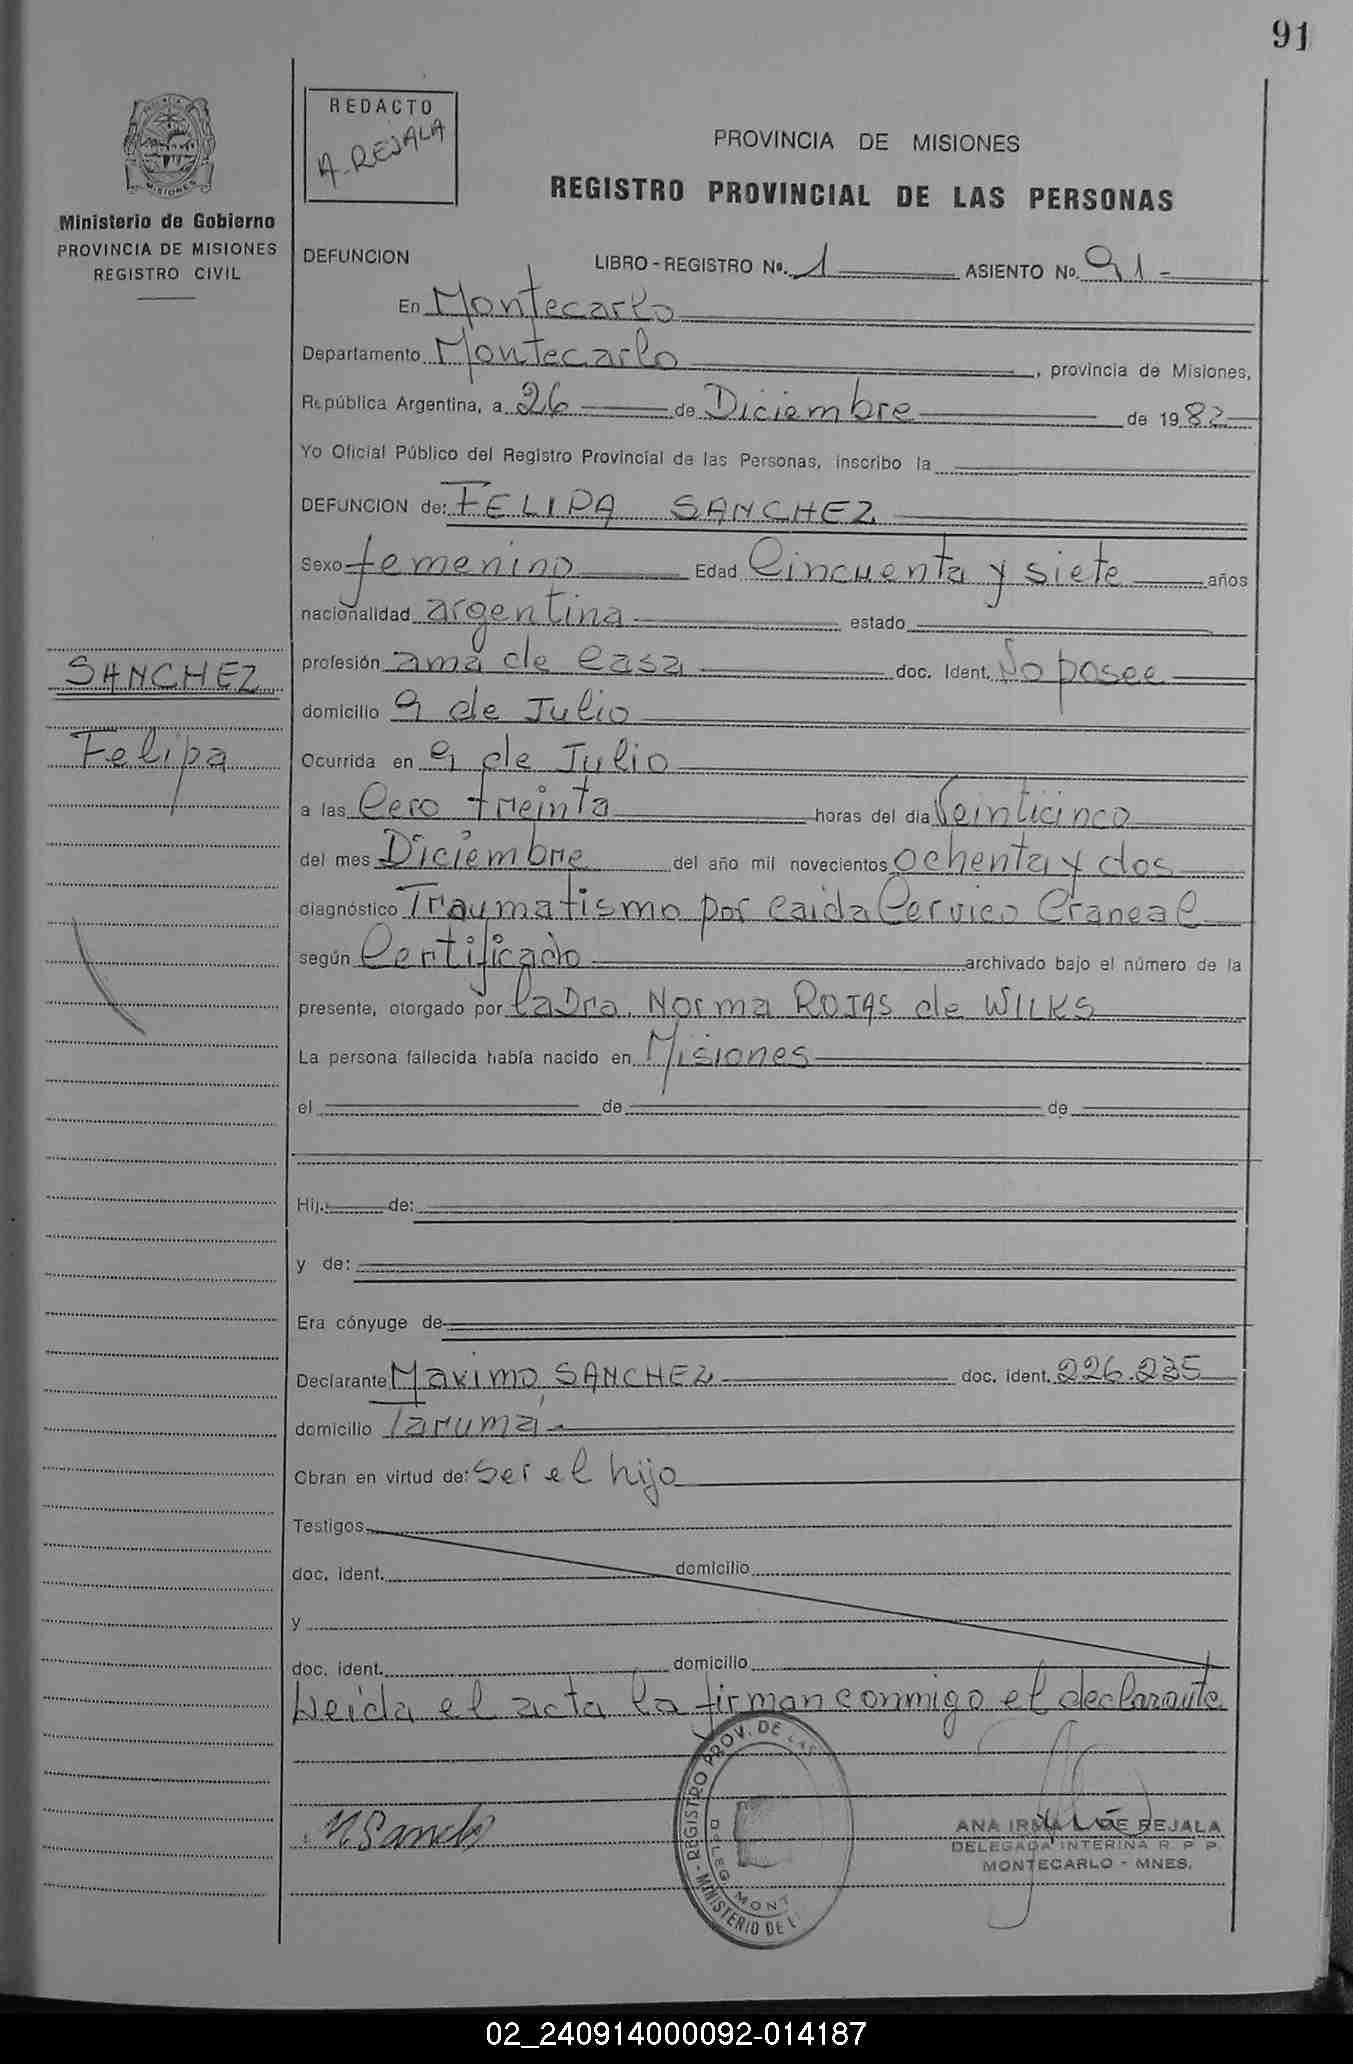 91
REDACTO
A. REJALA
MISIONES
Ministerio de Gobierno
PROVINCIA DE MISIONES
REGISTRO CIVIL
PROVINCIA DE MISIONES
REGISTRO PROVINCIAL DE LAS PERSONAS
DEFUNCION LIBRO - REGISTRO No. 1 ASIENTO No. 91-
En Montecarlo
Departamento Montecarlo, provincia de Misiones,
República Argentina, a 26 de Diciembre de 1982
Yo Oficial Público del Registro Provincial de las Personas, inscribo la
DEFUNCION de: FELIPA SANCHEZ
Sexo femenino Edad Cincuenta y siete años
nacionalidad argentina estado
SANCHEZ
Felipa
profesión ama de casa doc. Ident. No posee
domicilio 9 de Julio
Ocurrida en 9 de Julio
a las Cero treinta horas del día Veinticinco
del mes Diciembre del año mil novecientos ochenta y dos
diagnóstico Traumatismo por caida Cervico Craneal
según Certificado archivado bajo el número de la
presente, otorgado por la Dra. Norma ROJAS de WILKS
La persona fallecida había nacido en Misiones
el de de
Hij. de:
y de:
Era cónyuge de
Declarante Maximo SANCHEZ doc. ident. 226.235
domicilio Tarumá -
Obran en virtud de: Ser el hijo
Testigos
doc. ident. domicilio
y
doc. ident. domicilio
Leida el acta la firman conmigo el declarante
REGISTRO PROV. DE LAS
DELEG. MONT
MINISTERIO DE
ANA IRMA DE REJALA
DELEGADA INTERINA R. P. P.
MONTECARLO - MNES.
02_240914000092-014187